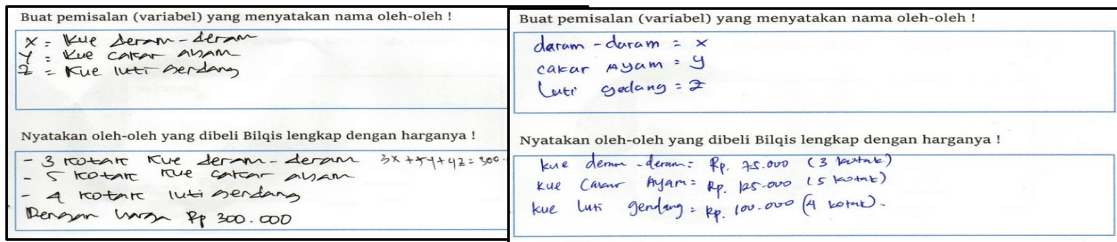 Buat pemisalan (variabel) yang menyatakan nama oleh-oleh !
x = Kue deram-deram
y = Kue cakar ayam
z = Kue luti gendang
Nyatakan oleh-oleh yang dibeli Bilqis lengkap dengan harganya !
- 3 kotak kue deram-deram 3x+5y+4z=300.
- 5 kotak kue cakar ayam
- 4 kotak luti gendang
Dengan harga Rp 300.000
Buat pemisalan (variabel) yang menyatakan nama oleh-oleh !
daram-daram = x
cakar Ayam = y
Luti gedang = z
Nyatakan oleh-oleh yang dibeli Bilqis lengkap dengan harganya !
kue deram-deram = Rp. 75.000 (3 kotak)
kue Cakar Ayam = Rp. 125.000 (5 kotak)
kue luti gendang = Rp. 100.000 (4 kotak).